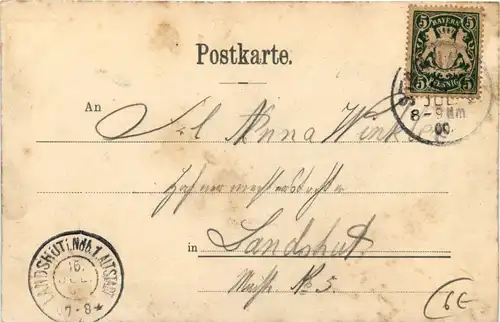 5 BAYERN 5
5 PFENNIG 5
Postkarte.
JUL
8-9 Nm
00.
An
Frl Anna Winkler
Hafnermeisterstochter
in Landshut
No 5.
LANDSHUT i. Ndb. 1. ALTSTADT
16.
JUL
7-8*
6E